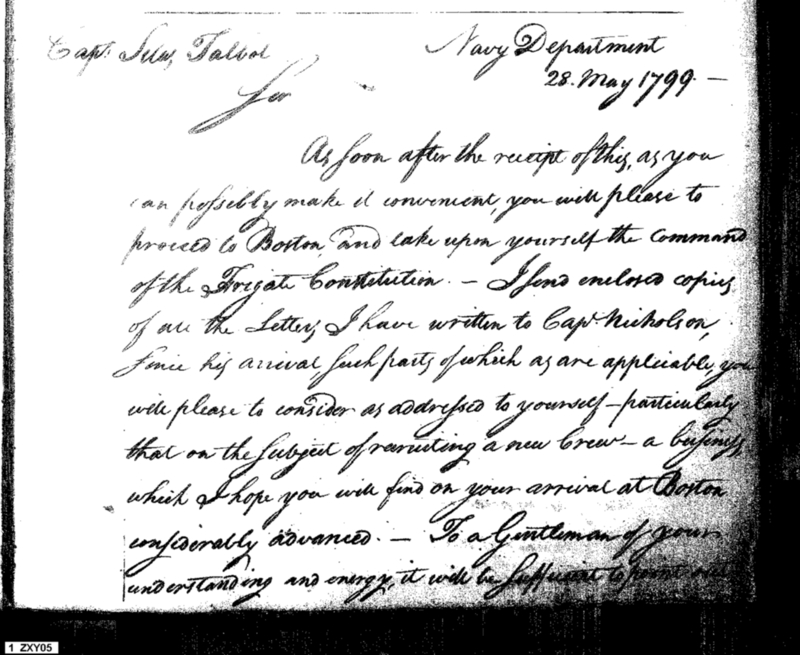 Capt. Silas Talbot
Navy Department
28. May 1799 —
Sir
As soon after the receipt of this, as you
can possibly make it convenient, you will please to
proceed to Boston, and take upon yourself the command
of the Frigate Constitution. — I send enclosed copies
of all the Letters I have written to Capt. Nicholson,
since his arrival, such parts of which as are applicable, you
will please to consider as addressed to yourself — particularly
that on the subject of recruiting a new Crew — a business
which I hope you will find on your arrival at Boston
considerably advanced. — To a Gentleman of your
understanding and energy, it will be sufficient to point out
1 ZXY05